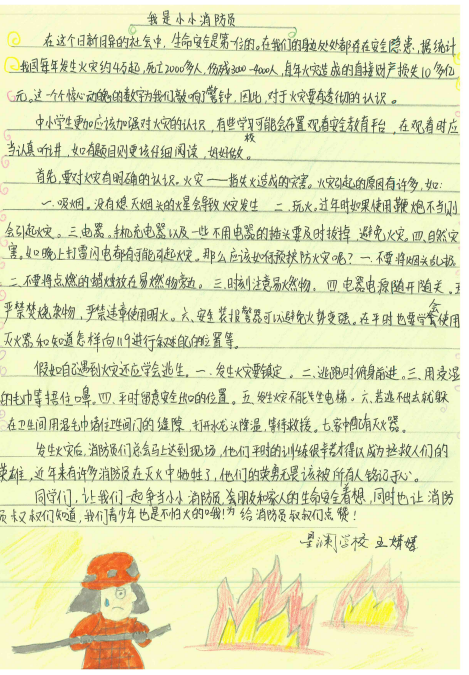 我是小小消防员
在这个日新月异的社会中，生命安全是第一位的。在我们的身边处处都存在安全隐患，据统计
我国每年发生火灾约4万起，死亡2000多人，伤残3000-4000人，每年火灾造成的直接财产损失10多亿
元。这一个个惊心动魄的数字为我们敲响了警钟，因此，对于火灾要有透彻的认识。
中小学生更加应该加强对火灾的认识，有些学校可能会布置观看安全教育平台，在观看时应
当认真听讲，如有题目则更该仔细阅读，好好做。
首先，要对火灾有明确的认识。火灾——指失火造成的灾害。火灾引起的原因有许多，如：
一、吸烟。没有熄灭烟头的火星会导致火灾发生 二、玩火。过年时如果使用鞭炮不当则
会引起火灾。三、电器。手机充电器以及一些不用电器的插头要及时拔掉 避免火灾。四、自然灾
害。如晚上打雷闪电都有可能引起火灾。那么应该如何预防火灾呢？一、不要将烟头乱扔
二、不要将点燃的蜡烛放在易燃物旁边。三、时刻注意易燃物。四、电器电源随开随关。五
严禁焚烧杂物，严禁违章使用明火。六、安装报警器可以避免火势变强。在平时也要学会使用
灭火器和知道怎样向119进行的位置等。
假如自己遇到火灾还应学会逃生。一、发生火灾要镇定。二、逃跑时俯身前进。三、用浸湿
的毛巾等捂住口鼻。四、平时留意安全出口的位置。五、发生火灾不能坐电梯。六、若逃不出去就躲
在卫生间用湿毛巾堵住卫生间门的缝隙 打开水龙头降温，等待救援。七、家中配有灭火器。
发生火灾后，消防员们总会马上达到现场，他们平时的训练很辛苦才得以成为拯救人们的
英雄，近年来有许多消防员在灭火中牺牲了，他们的英勇无畏该被所有人铭记于心。
同学们，让我们一起争当小小消防员，为朋友和家人的生命安全着想，同时也让消防
员叔叔们知道，我们青少年也是不怕火的哦！为给消防员叔叔们点赞！
星澜学校 王婧婧